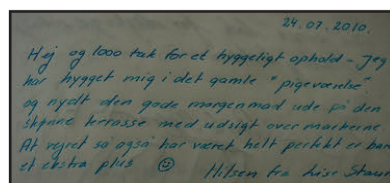 24.07.2010.
Hej og 1000 tak for et hyggeligt ophold - Jeg
har hygget mig i det gamle "pigeværelse"
og nydt den gode morgenmad ude på den
skønne terrasse med udsigt over markerne
At vejret så også har været helt perfekt er bare
et ekstra plus ☺
Hilsen fra